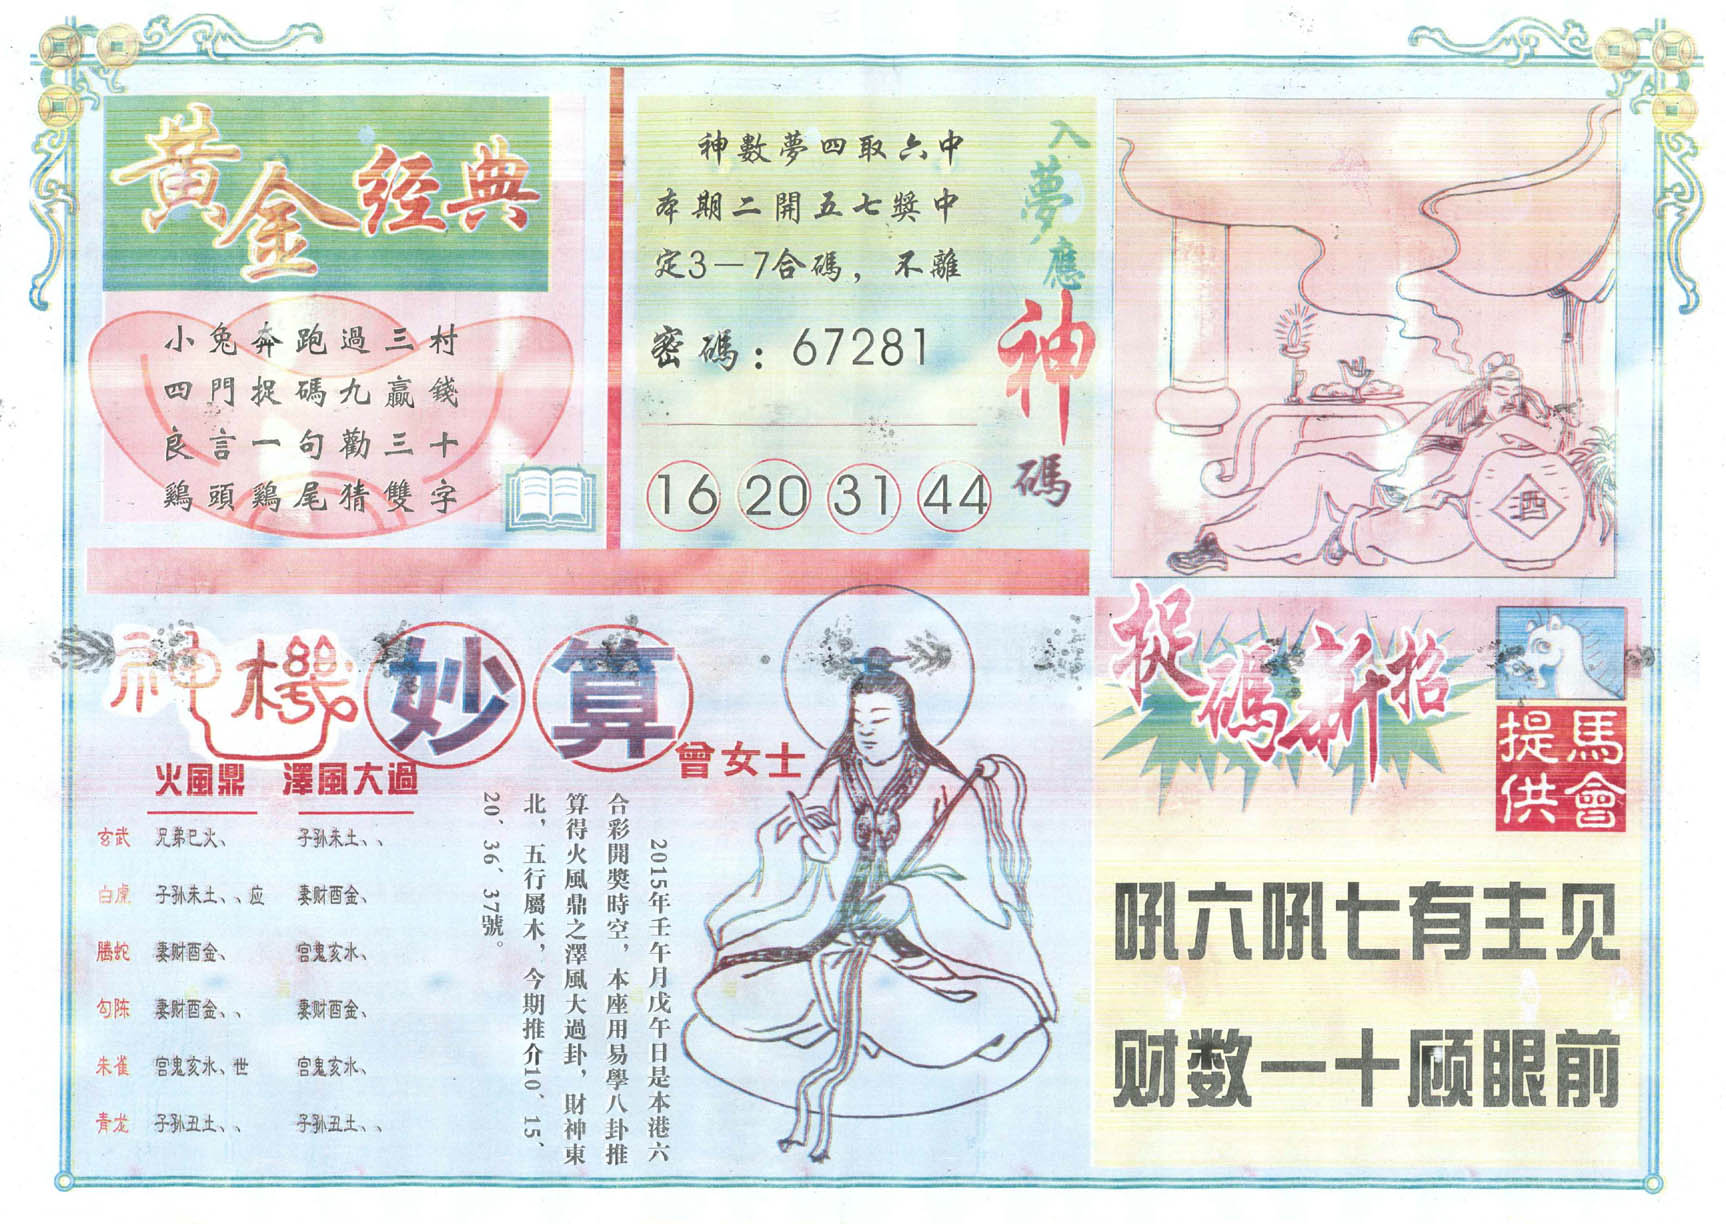 黄金经典
小兔奔跑過三村
四門捉碼九贏錢
良言一句勸三十
鷄頭鷄尾猜雙字
入夢應神碼
神數夢四取六中
本期二開五七獎中
定3—7合碼，不離
密碼：67281
16 20 31 44
酒
神機妙算
曾女士
火風鼎 澤風大過
玄武 兄弟巳火、 子孙未土、、
白虎 子孙未土、、应 妻财酉金、
騰蛇 妻财酉金、 官鬼亥水、
勾陈 妻财酉金、、 妻财酉金、
朱雀 官鬼亥水、世 官鬼亥水、
青龙 子孙丑土、、 子孙丑土、、
2015年壬午月戊午日是本港六
合彩開獎時空，本座用易學八卦推
算得火風鼎之澤風大過卦，財神東
北，五行屬木，今期推介10、15、
20、36、37號。
捉碼新招
馬會提供
吼六吼七有主见
财数一十顾眼前